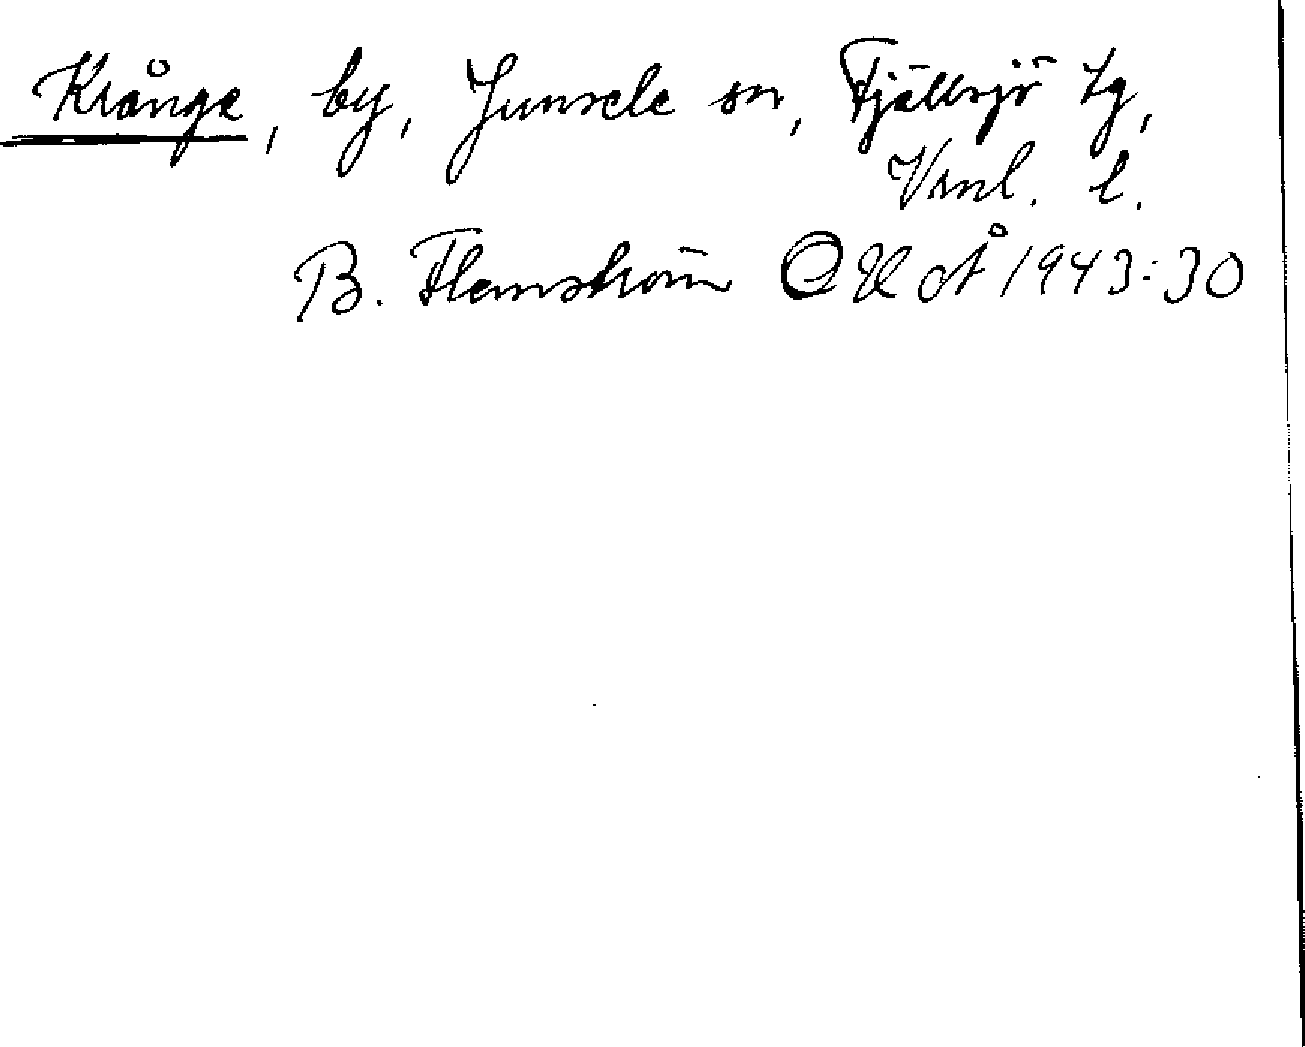 Krånge, by, Junsele sn, Fjällsjö tg,
Vrnl. l.
B. Flemström OUoÅ 1943:30